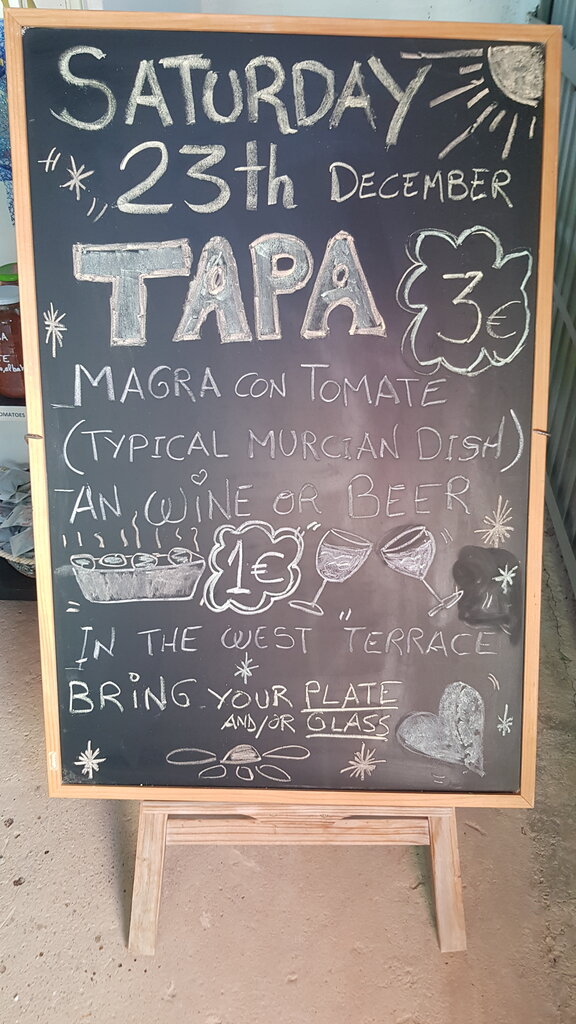 SATURDAY
23th DECEMBER
TAPA 3€
MAGRA CON TOMATE
(TYPICAL MURCIAN DISH)
AN WINE OR BEER
1€
IN THE WEST TERRACE
BRING YOUR PLATE
AND/OR GLASS
OMATOES